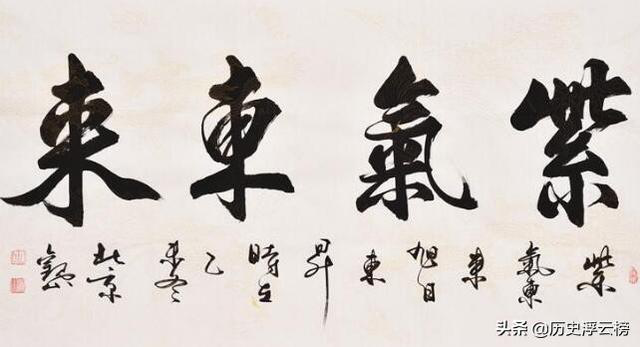 紫氣東來
紫氣東來旭日東昇時在乙未冬北京
头条 @历史浮云榜